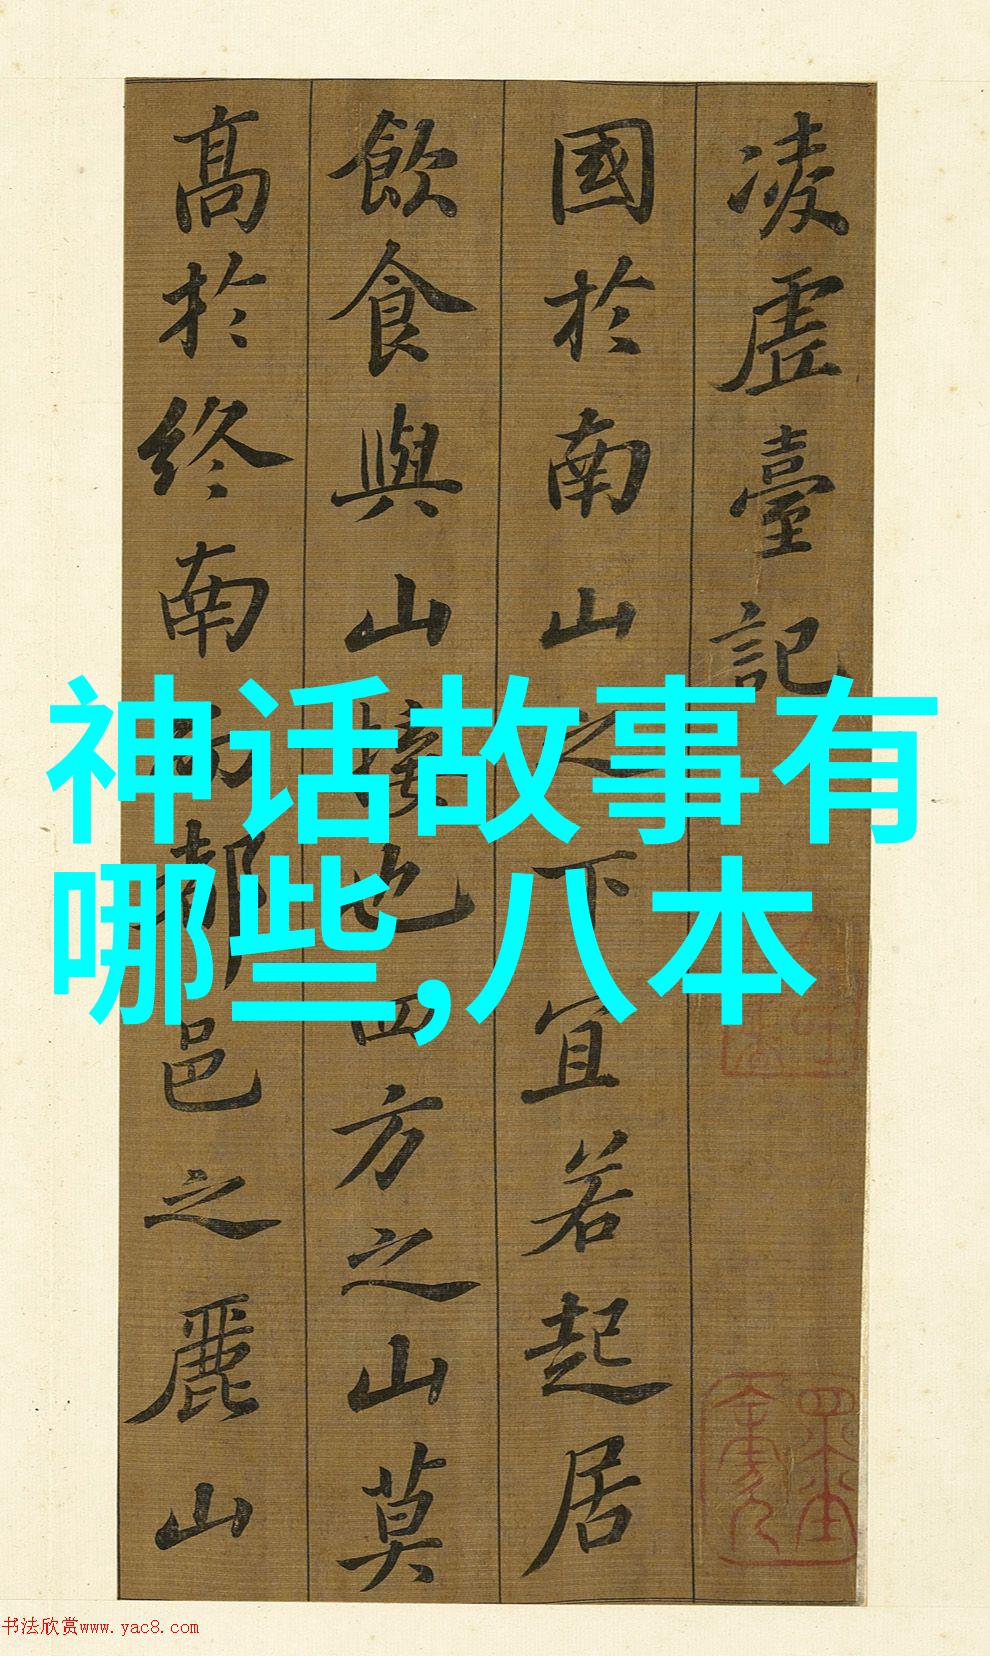 凌虛臺記
國於南山之下宜若起居
飲食與山接也四方之山莫
高於終南而都邑之麗山
神话故事有
哪些,八本
书法欣赏www.yac8.com